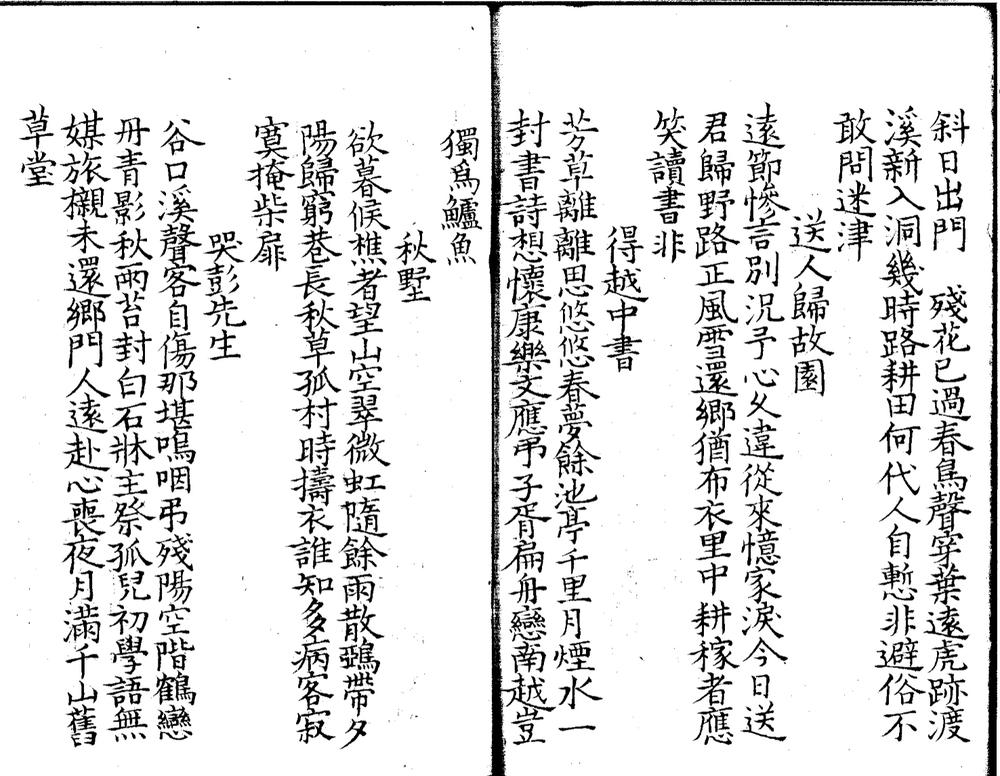 斜日出門　殘花已過春鳥聲穿葉遠虎跡渡
溪新入洞幾時路耕田何代人自慙非避俗不
敢問迷津
送人歸故園
遠節慘言別況予心久違從來憶家淚今日送
君歸野路正風雪還鄉猶布衣里中耕稼者應
笑讀書非
得越中書
芳草離離思悠悠春夢餘池亭千里月煙水一
封書詩想懷康樂文應弔子胥扁舟戀南越豈
獨爲鱸魚
秋墅
欲暮候樵者望山空翠微虹隨餘雨散鵶帶夕
陽歸窮巷長秋草孤村時擣衣誰知多病客寂
寞掩柴扉
哭彭先生
谷口溪聲客自傷那堪嗚咽弔殘陽空階鶴戀
丹青影秋雨苔封白石牀主祭孤兒初學語無
媒旅櫬未還鄉門人遠赴心喪夜月滿千山舊
草堂